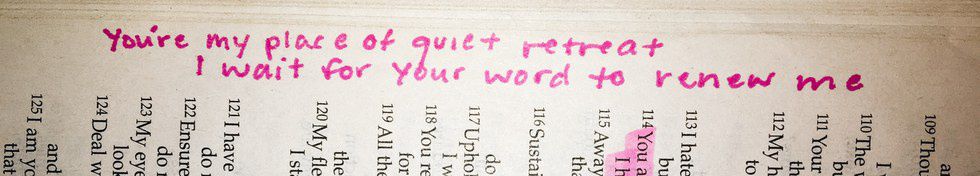 You're my place of quiet retreat
I wait for your word to renew me
109 Thou
110 The
111 Your
112 My h
113 I hate
114 You a
I h
115 Away
tha
116 Sustai
117 Uphol
do
118 You re
I w
119 All the
for
120 My fle
the
I st
121 I have
122 Ensure
do n
123 My eye
do
look
124 Deal w
125 I am yo
and
that